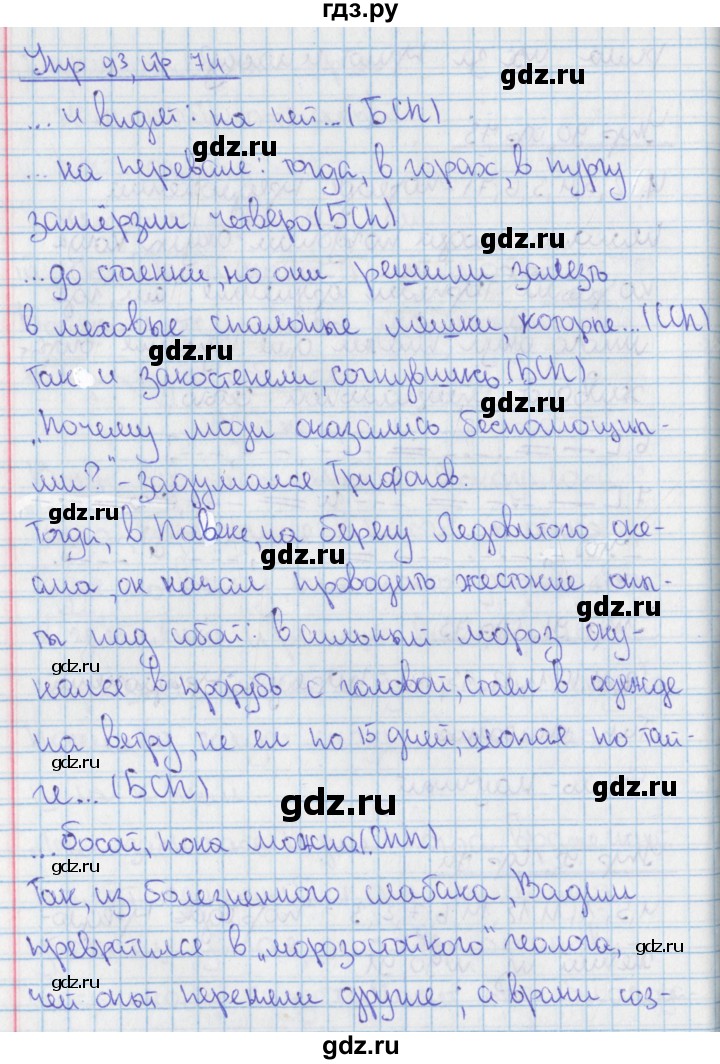 гдз.ру
Упр 93, стр 74
gdz.ru
... и видят: на ней... (БСП)
gdz.ru
... на перевале: тогда, в горах, в пургу
замёрзли четверо (БСП)
gdz.ru
... до стоенки, но они решили залезть
в меховые спальные мешки, которые... (СП)
gdz.ru
Так и закостенели, согнувшись (БСП)
gdz.ru
„Почему люди оказались беспомощны-
ми?" - задумался Трифонов.
gdz.ru
Тогда, в Певеке, на берегу Ледовитого оке-
gdz.ru
ана, он начал проводить жестокие опы-
gdz.ru
ты над собой: в сильный мороз оку-
gdz.ru
нался в прорубь с головой, стоял в одежде
на ветру, не ел по 15 дней, шопая по тай-
gdz.ru
ге... (БСП)
gdz.ru
gdz.ru
... босой, пока можна (СПП)
gdz.ru
Так, из болезненного слабака, Вадим
превратился в „морозостойкого" геолога,
gdz.ru
чей опыт переняли другие; а врачи соз-
gdz.ru
gdz.ru